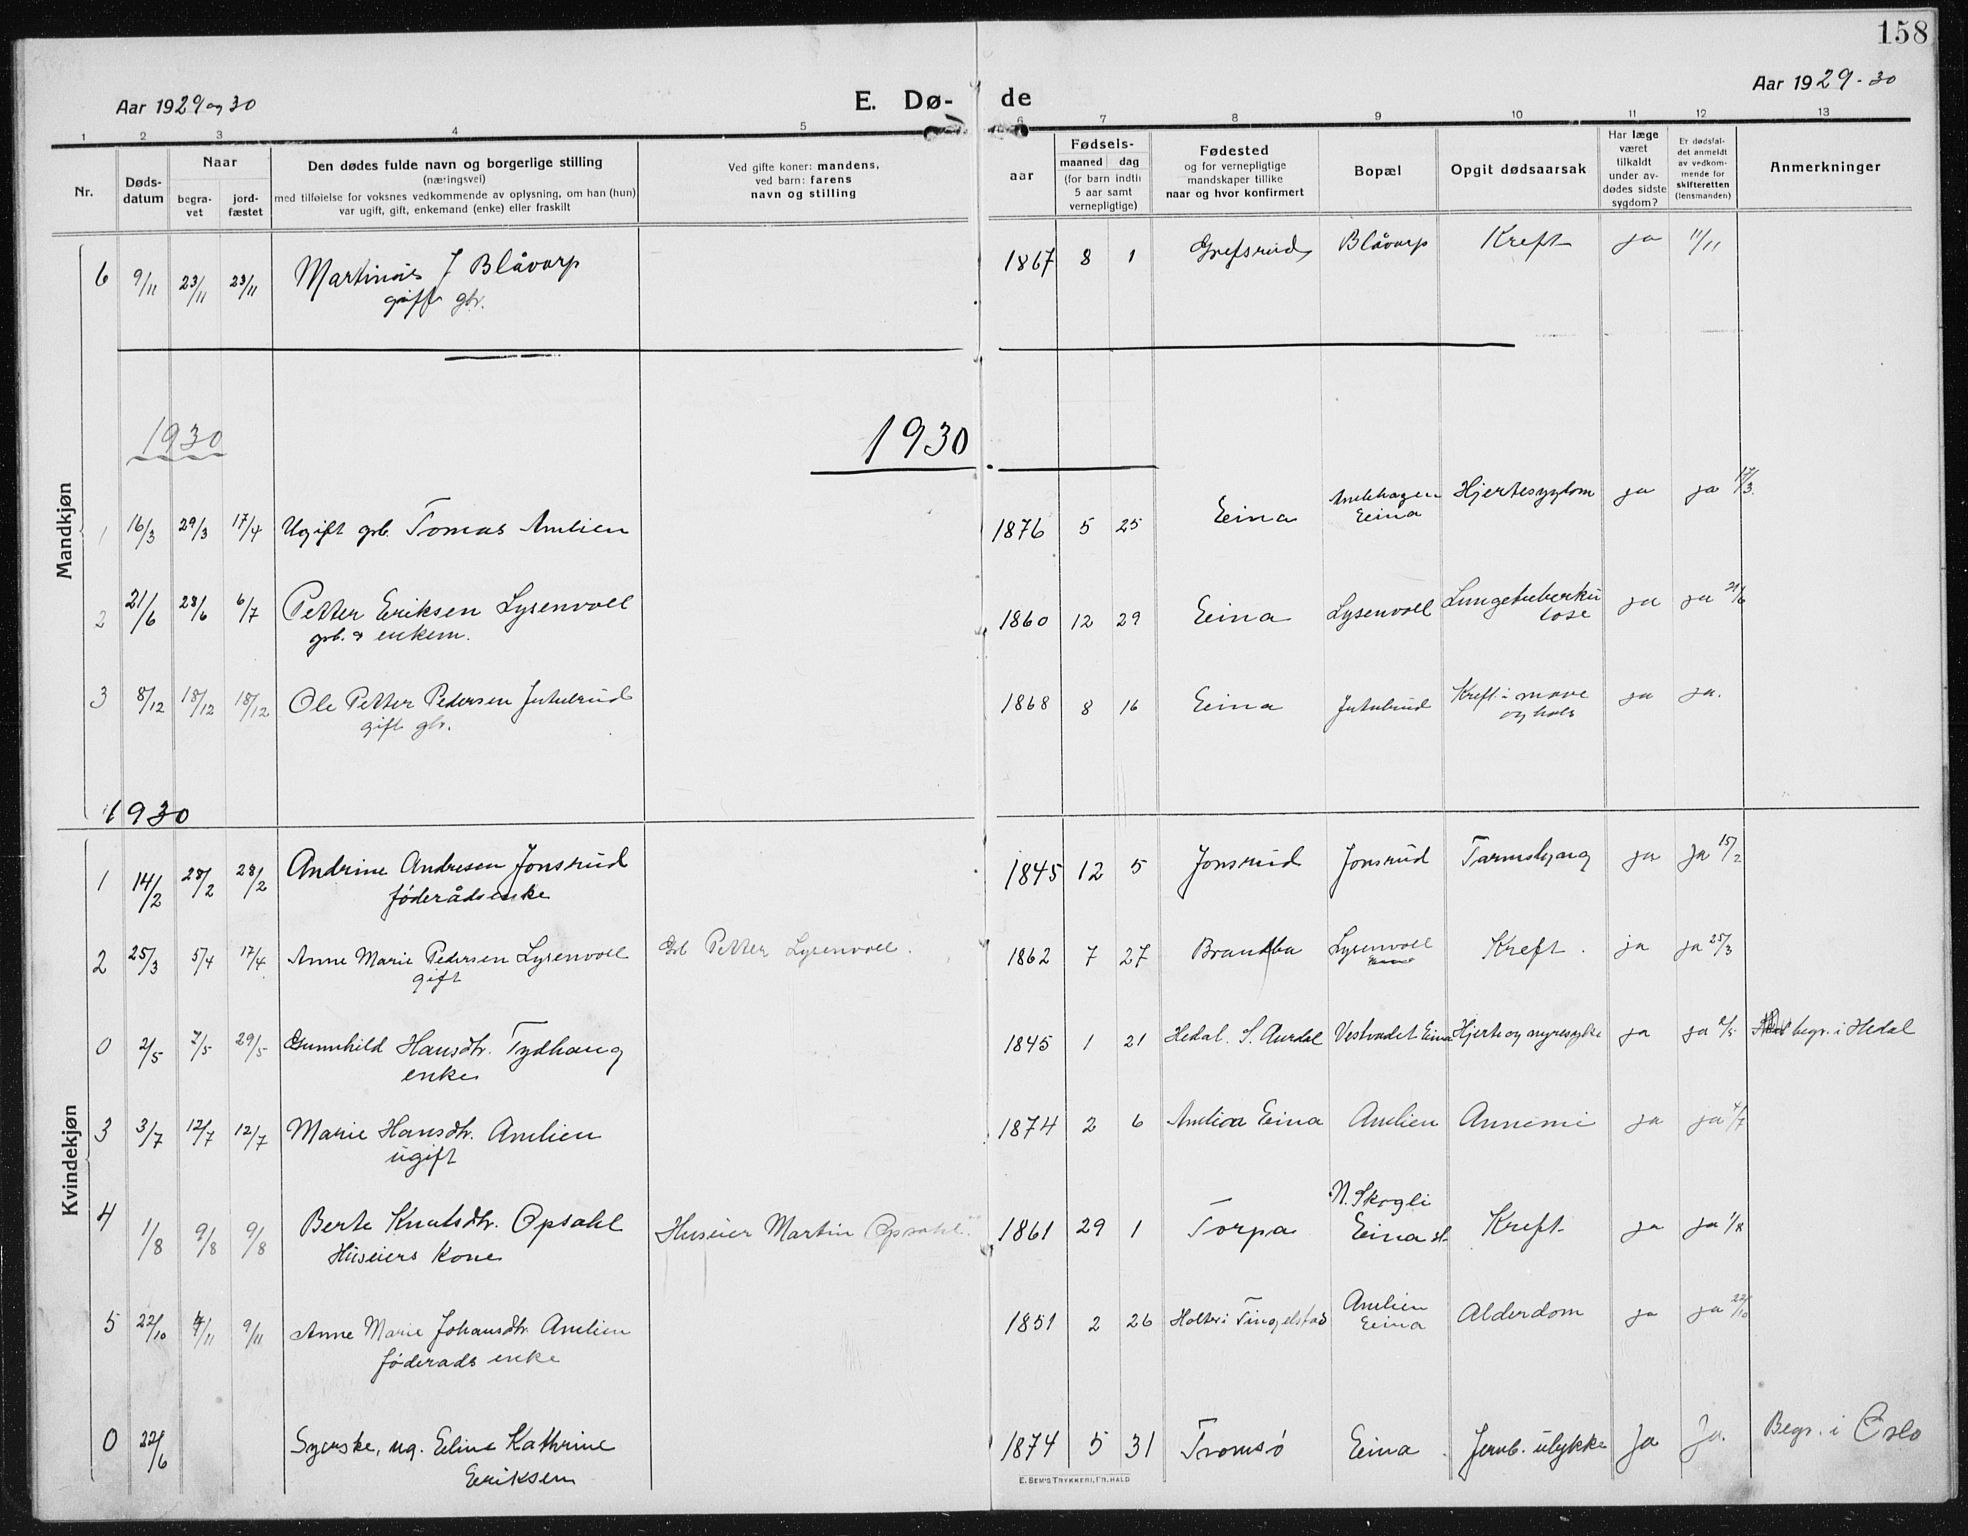 158
Aar 1929 og 30
E. Dø-
de
Aar 1929 - 30
1 2 3 4 5 6 7 8 9 10 11 12 13
Nr.
Døds-
datum
Naar
begra-
vet
jord-
fæstet
Den dødes fulde navn og borgerlige stilling
(næringsvei)
med tilføielse for voksnes vedkommende av oplysning, om han (hun)
var ugift, gift, enkemand (enke) eller fraskilt
Ved gifte koner: mandens,
ved barn: farens
navn og stilling
Fødsels-
aar
maaned dag
(for barn indtil
5 aar samt
vernepligtige)
Fødested
og for vernepligtige
mandskaper tillike
naar og hvor konfirmert
Bopæl
Opgit dødsaarsak
Har læge
været
tilkaldt
under av-
dødes sidste
sygdom?
Er dødsfal-
det anmeldt
av vedkom-
mende for
skifteretten
(lensmanden)
Anmerkninger
Mandkjøn
6 9/11 23/11 23/11 Martinus J Blåvarp 1867 8 1 Grefsrud Blåvarp Kreft ja 11/11
gift gbr.
1930
1930
1 16/3 29/3 17/4 Ugift grb. Tomas Amlien 1876 5 25 Eina Amlehagen Eina Hjertesygdom ja ja 17/3
2 21/6 28/6 6/7 Petter Eriksen Lysenvoll 1860 12 29 Eina Lysenvoll Lungetuberku ja ja 21/6
grb. & enkem. lose
3 8/12 18/12 18/12 Ole Petter Pedersen Jutulrud 1868 8 16 Eina Jutulrud Kreft i mave ja ja.
gift gbr. og hals
1930
Kvindekjøn
1 14/2 28/2 28/2 Andrine Andresen Jonsrud 1845 12 5 Jonsrud Jonsrud Tarmslyng ja ja 15/2
føderådsenke
2 25/3 5/4 17/4 Anne Marie Pedersen Lysenvoll Grb Petter Lysenvoll. 1862 7 27 Brandbu Lysenvoll Kreft. ja ja 25/3
gift
0 2/5 7/5 29/5 Gunnhild Hansdtr. Tydhaug 1845 1 21 Hedal. S. Aurdal Vestvadet Eina Hjerte og nyresyke ja ja 2/5 begr. i Hedal
enke
3 3/7 12/7 12/7 Marie Hansdtr. Amlien 1874 2 6 Amlien Eina Amlien Annemi ja ja 4/7
ugift
N. Skogli
4 1/8 9/8 9/8 Berte Knutsdtr. Opsahl Huseier Martin Opsahl. 1861 29 1 Torpa Eina st. Kreft ja ja 1/8
Huseiers Kone
5 22/10 9/11 Anne Marie Johansdtr Amlien 1851 2 26 Holter i Tingelstad Amlien Eina Alderdom ja ja 22/10
føderads enke
0 22/6 Syerske, ug. Eline Kathrine 1874 5 31 Tromsø Eina Jernb. ulykke Ja Ja. Begr. i Oslo
Eriksen
E. SEM'S TRYKKERI, FR.HALD